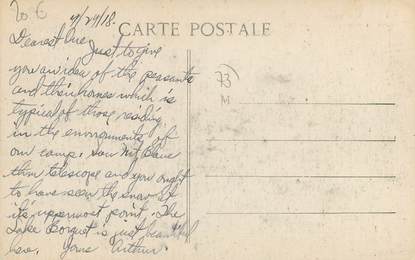 20-6
4/29/18.
CARTE POSTALE
Dearest One,
Just to give
you an idea of the peasants
and their homes which is
typical of those residing
in the environments of
our camp. Saw Mt Blanc
thru telescope and you ought
to have seen the snow at
it's uppermost point. The
Lake Borget is just beautiful
here. Yours Arthur.
73
M